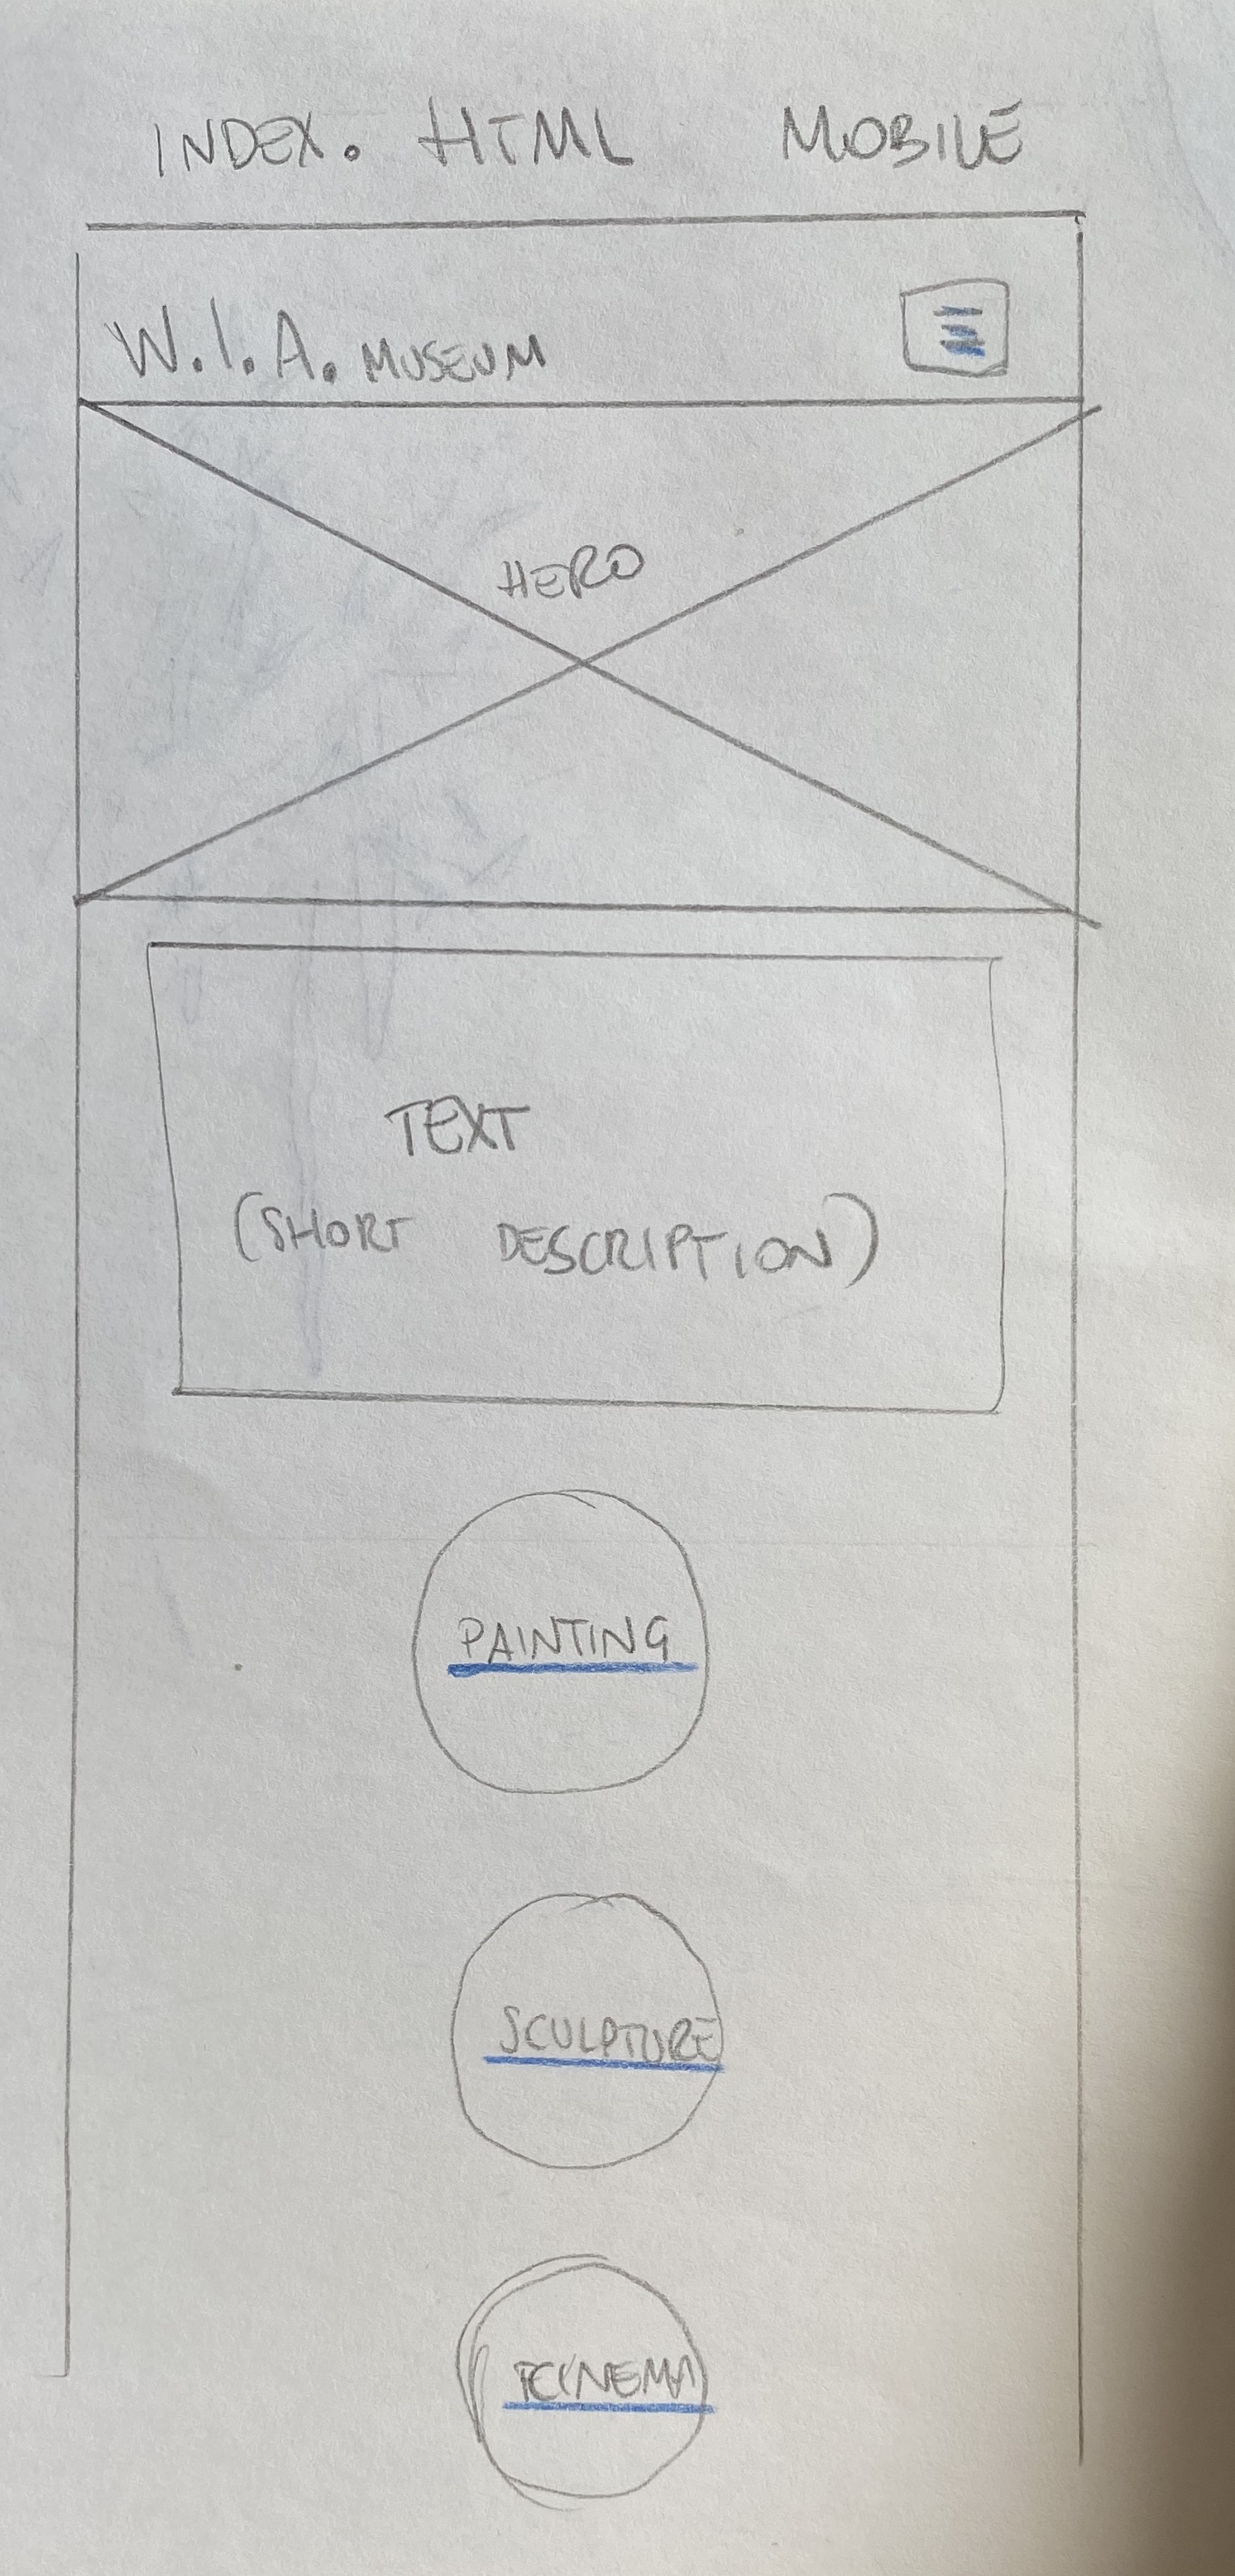 INDEX. HTML MOBILE
W.I.A. MUSEUM
HERO
TEXT
(SHORT DESCRIPTION)
PAINTING
SCULPTURE
CINEMA